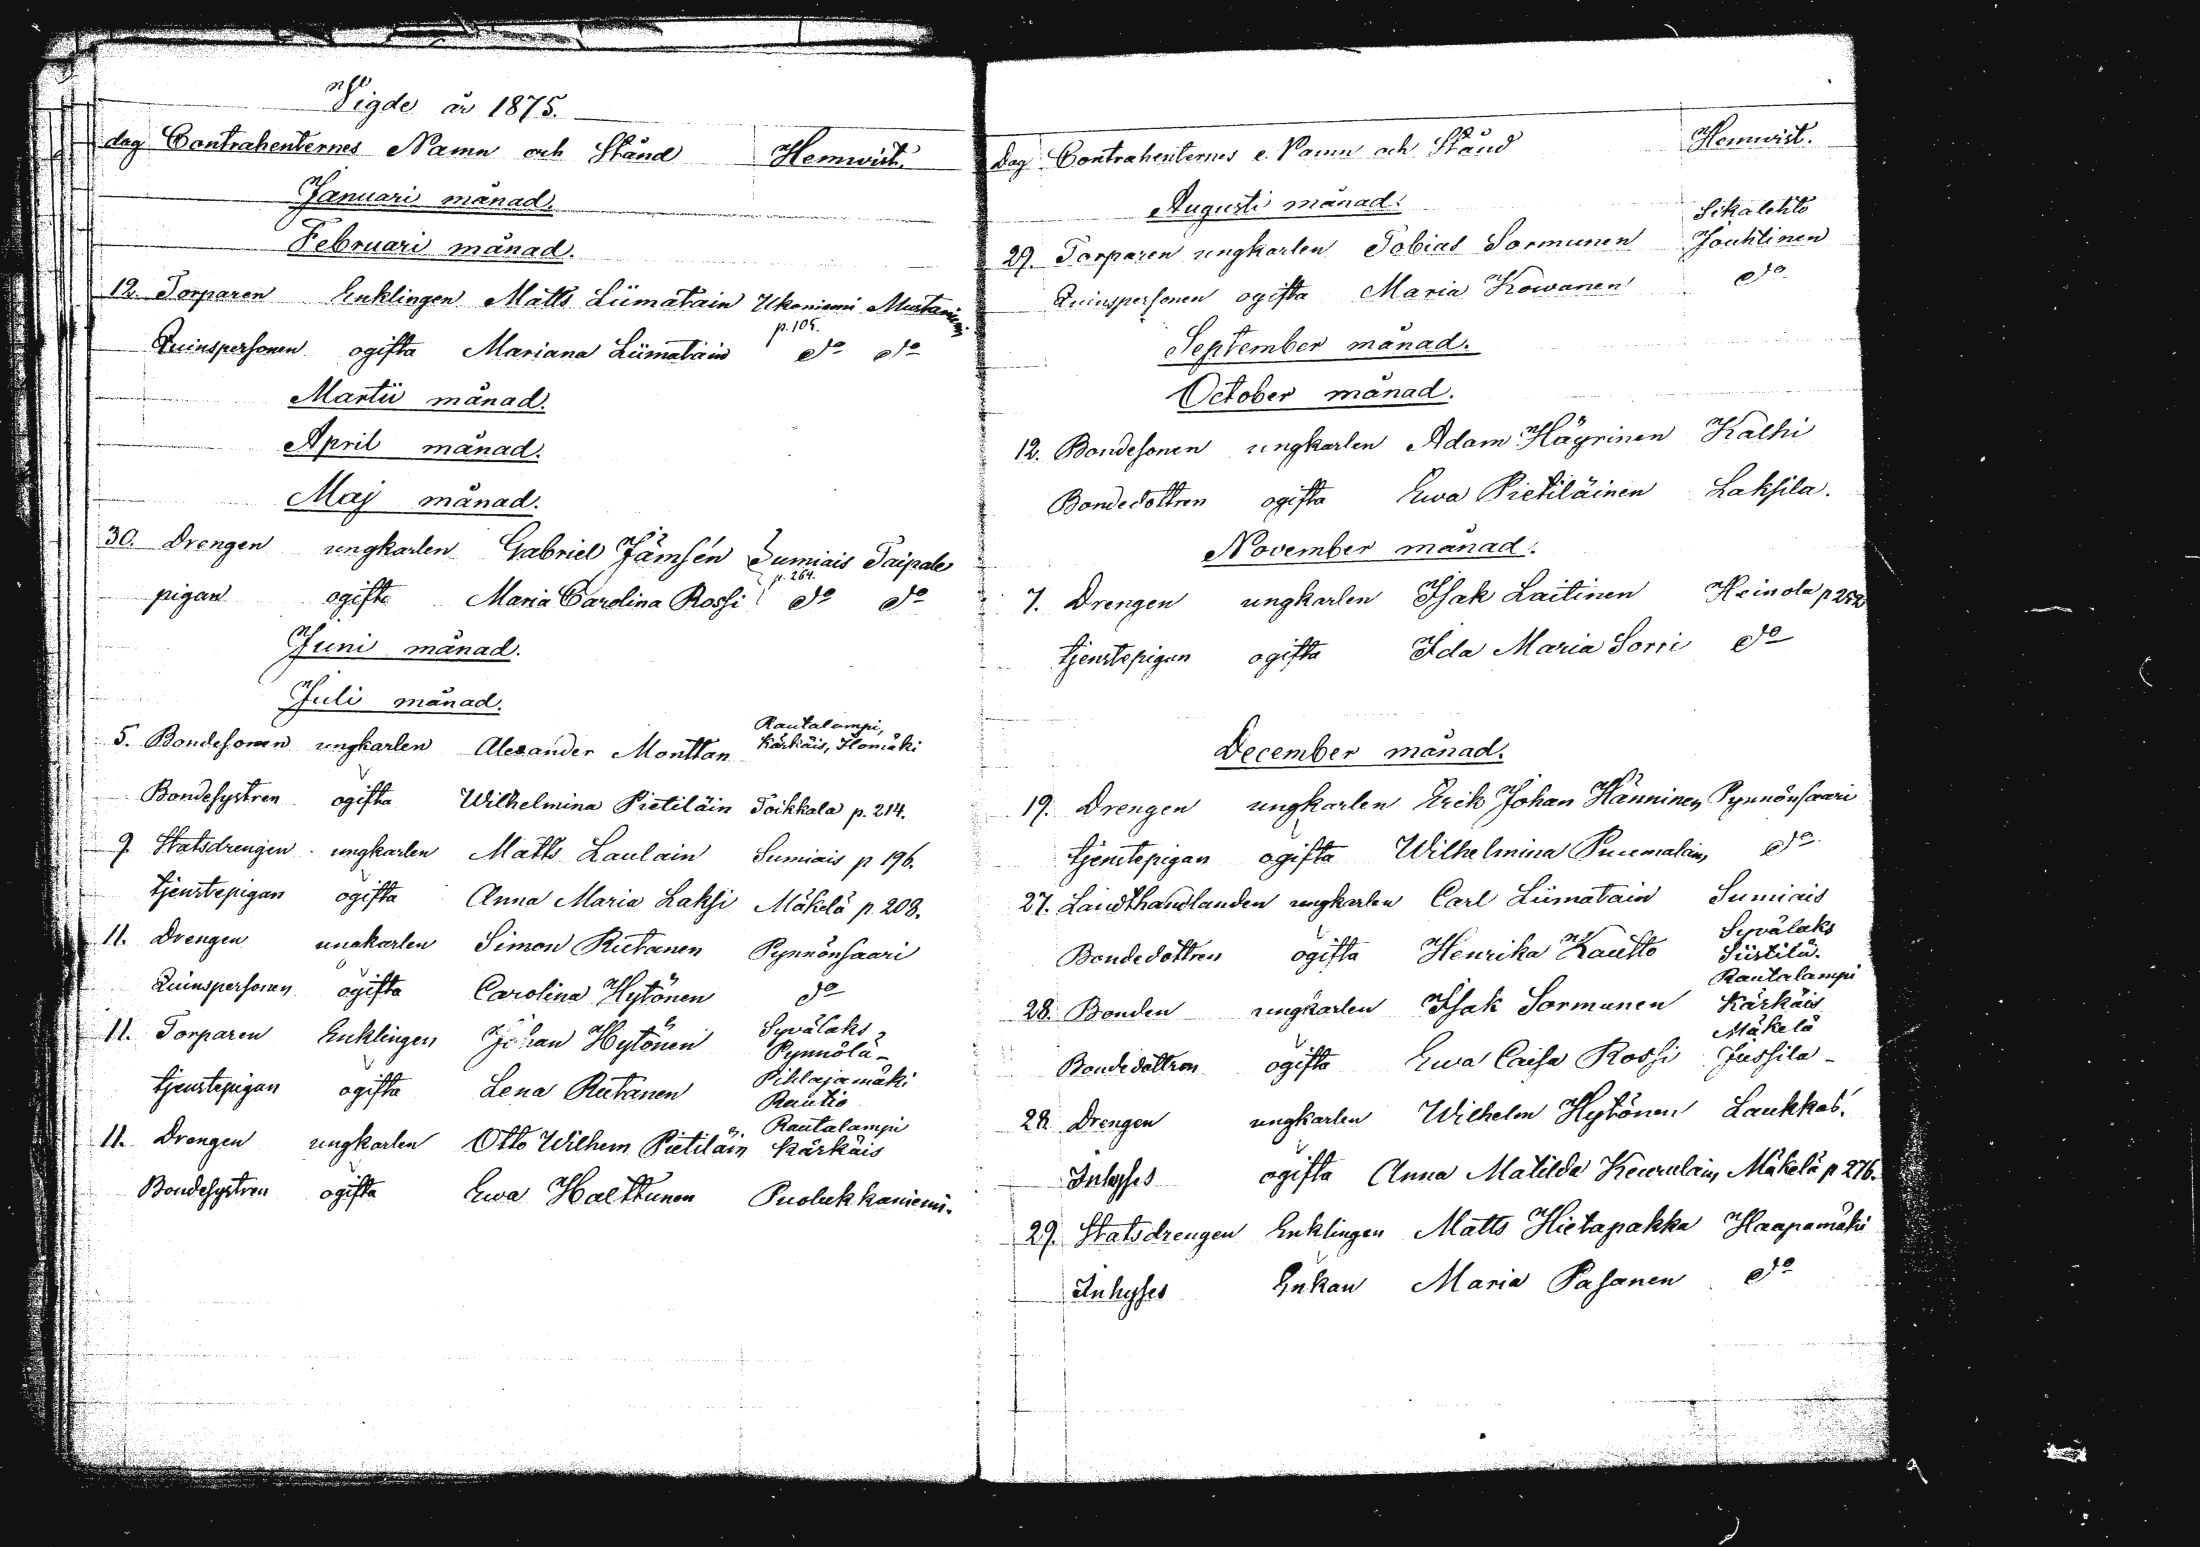 Vigde år 1875.
dag Contrahenternes Namn och Stånd Hemvist.
Januari månad.
Februari månad.
12. Torparen Enklingen Matts Liimatain Ukoniemi Mustaniemi
p. 105.
Qvinspersonen ogifta Mariana Liimatain do do
Martii månad.
April månad.
Maj månad.
30. Drengen ungkarlen Gabriel Jämsén Sumiais Taipale
p. 264.
pigan ogifta Maria Carolina Rossi do do
Juni månad.
Juli månad.
5. Bondesonen ungkarlen Alexander Monttan Rautalampi,
Kärkäis, Ilomäki
Bondesystren ogifta Wilhelmina Pietiläin Toikkala p. 214.
9. Statsdrengen ungkarlen Matts Laulain Sumiais p 196.
tjenstepigan ogifta Anna Maria Laksi Mäkelä p. 208.
11. Drengen ungkarlen Simon Rutanen Pynnönsaari
Qvinspersonen ogifta Carolina Hytönen do
11. Torparen Enklingen Johan Hytönen Syvälaks
Pynnölä -
tjenstepigan ogifta Lena Rutanen Pihlajamäki
Rautio
11. Drengen ungkarlen Otto Wilhem Pietiläin Rautalampi
Kärkäis
Bondesystren ogifta Ewa Halttunen Puolukkaniemi.
Dag Contrahenternes Namn och Stånd Hemvist.
Augusti månad.
Sikalehto
29. Torparen ungkarlen Tobias Sormunen Jouhtinen
Qvinspersonen ogifta Maria Kowanen do
September månad.
October månad.
12. Bondesonen ungkarlen Adam Häyrinen Kalhi
Bondedottren ogifta Ewa Pietiläinen Laksila.
November månad.
7. Drengen ungkarlen Isak Laitinen Heinola p 252
tjenstepigan ogifta Ida Maria Sorri do
December månad.
19. Drengen ungkarlen Erik Johan Hänninen Pynnönsaari
tjenstepigan ogifta Wilhelmina Puumalain do
27. Landthandlanden ungkarlen Carl Liimatain Sumiais
Bondedottren ogifta Henrika Kautto Syvälaks
Siistilä.
28. Bonden ungkarlen Isak Sormunen Rautalampi
Kärkäis
Bondedottren ogifta Ewa Caisa Rossi Mäkelä
Jussila -
28. Drengen ungkarlen Wilhelm Hytönen Laukkas.
Inhyses ogifta Anna Matilda Keurulain Mäkelä p 276.
29. Statsdrengen Enklingen Matts Hietapakka Haapamäki
Inhyses Enkan Maria Pasanen do